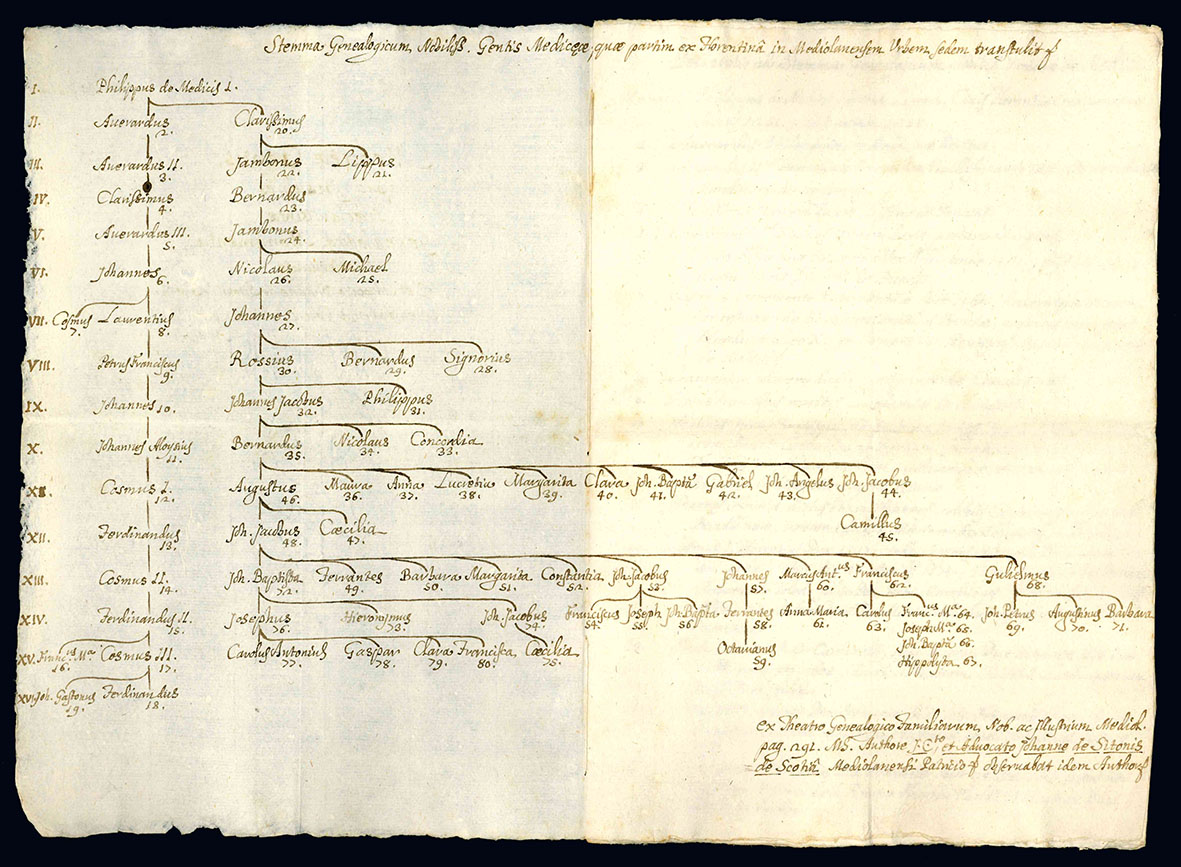 Stemma Genealogicum Nobiliss. Gentis Mediceæ, quæ partim ex Florentinâ in Mediolanensem Urbem sedem transtulit
I. Philippus de Medicis 1.
II. Averardus 2. Clarissimus 20.
III. Averardus II. 3. Jambonus 22. Lippus 21.
IV. Clarissimus 4. Bernardus 23.
V. Averardus III. 5. Jambonus 24.
VI. Johannes 6. Nicolaus 26. Michael 25.
VII. Cosmus 7. Laurentius 8. Johannes 27.
VIII. Petrus Franciscus 9. Rossius 30. Bernardus 29. Signorius 28.
IX. Johannes 10. Johannes Jacobus 32. Philippus 31.
X. Johannes Aloysius 11. Bernardus 35. Nicolaus 34. Concordia 33.
XI. Cosmus I. 12. Augustus 46. Maura 36. Anna 37. Lucretia 38. Margarita 39. Clara 40. Joh. Baptâ 41. Gabriel 42. Joh. Angelus 43. Joh. Jacobus 44.
Camillus 45.
XII. Ferdinandus 13. Joh. Jacobus 48. Cæcilia 47.
XIII. Cosmus II. 14. Joh. Baptista 72. Ferrantes 49. Barbara 50. Margarita 51. Constantia 52. Joh. Jacobus 53. Johannes 57. Marcus Ant.us 60. Franciscus 62. Gulielmus 68.
XIV. Ferdinandus II. 15. Josephus 76. Hieronimus 73. Joh. Jacobus 74. Franciscus 54. Joseph 55. Joh. Bapta 56. Ferrantes 58. Anna Maria 61. Carolus 63. Francus Ma 64. Joh. Petrus 69. Augustinus 70. Barbara 71.
Joseph Ma 65.
Joh. Bapta 66.
Hippolyta 67.
XV. Francus Ma 16. Cosmus III. 17. Carolus Antonius 77. Gaspar 78. Clara 79. Francisca 80. Cæcilia 75. Octavianus 59.
XVI. Joh. Gastonus 19. Ferdinandus 18.
ex Theatro Genealogico Familiarum Nob. ac Illustrium Mediol.
pag. 291. MS. Authore J.C.to et Advocato Johanne de Sitonis
de Scotiâ Mediolanensi Patricio & observabat idem Author